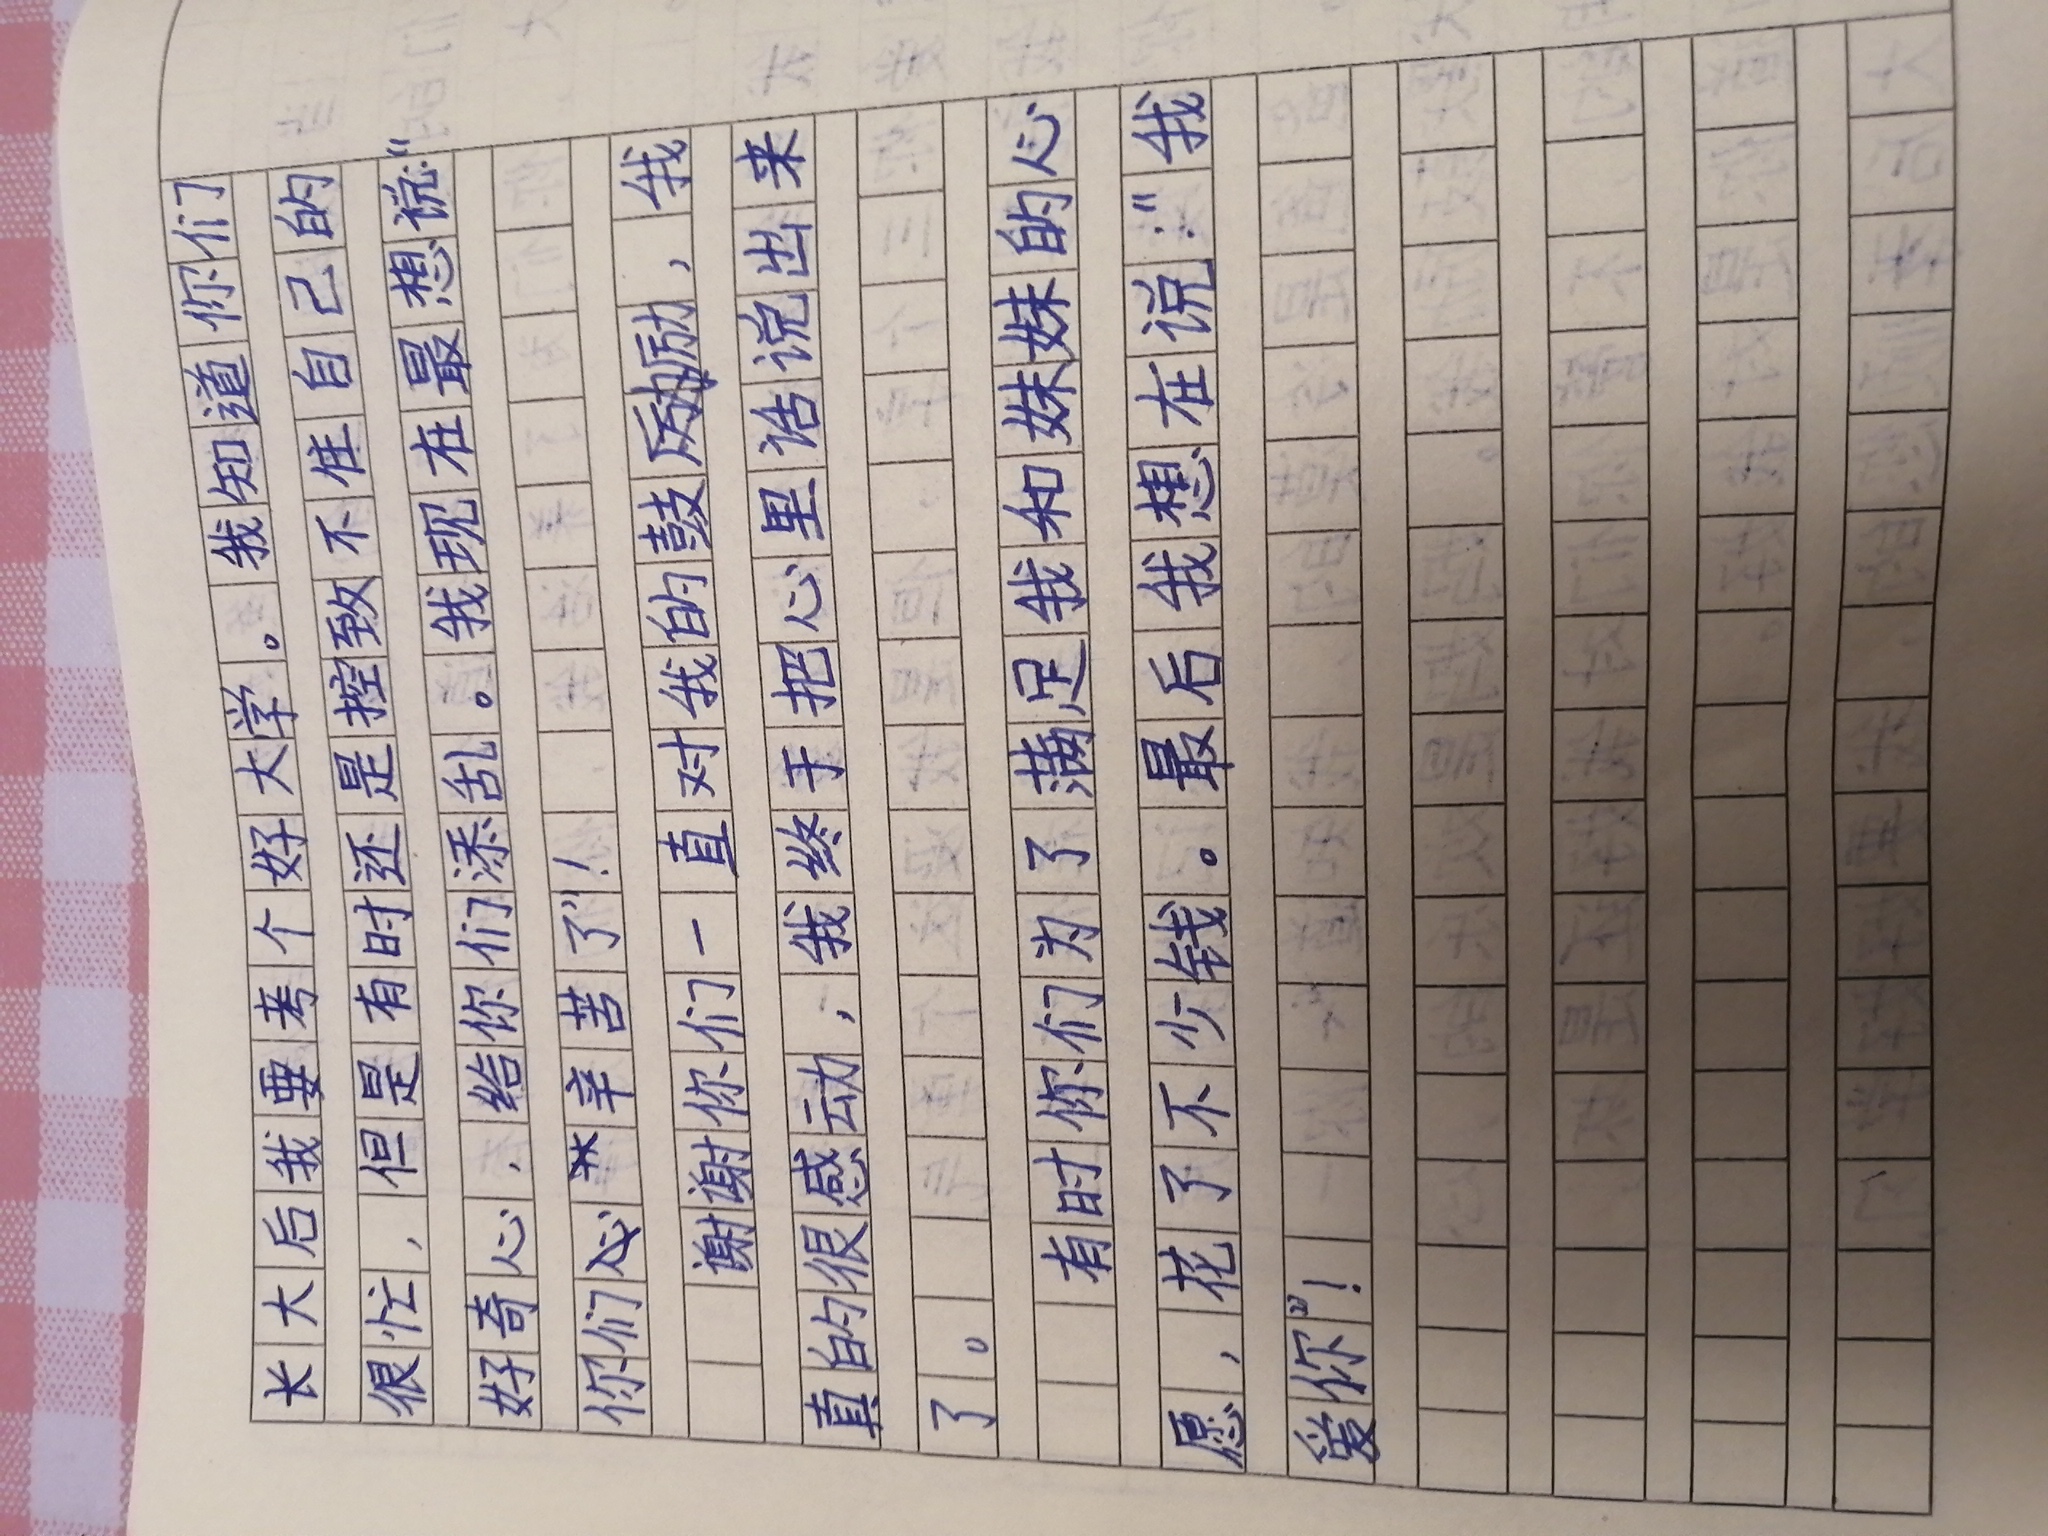 长大后我要考个好大学。我知道你们
很忙，但是有时还是控致不住自己的
好奇心，给你们添乱。我现在最想说“
你们辛苦了”！
谢谢你们一直对我的鼓励，我
真的很感动，我终于把心里话说出来
了。
有时你们为了满足我和妹妹的心
愿，花了不少钱。最后我想在说：“我
爱你”！